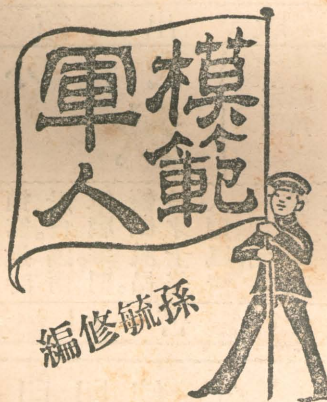 模範
軍人
孫毓修編